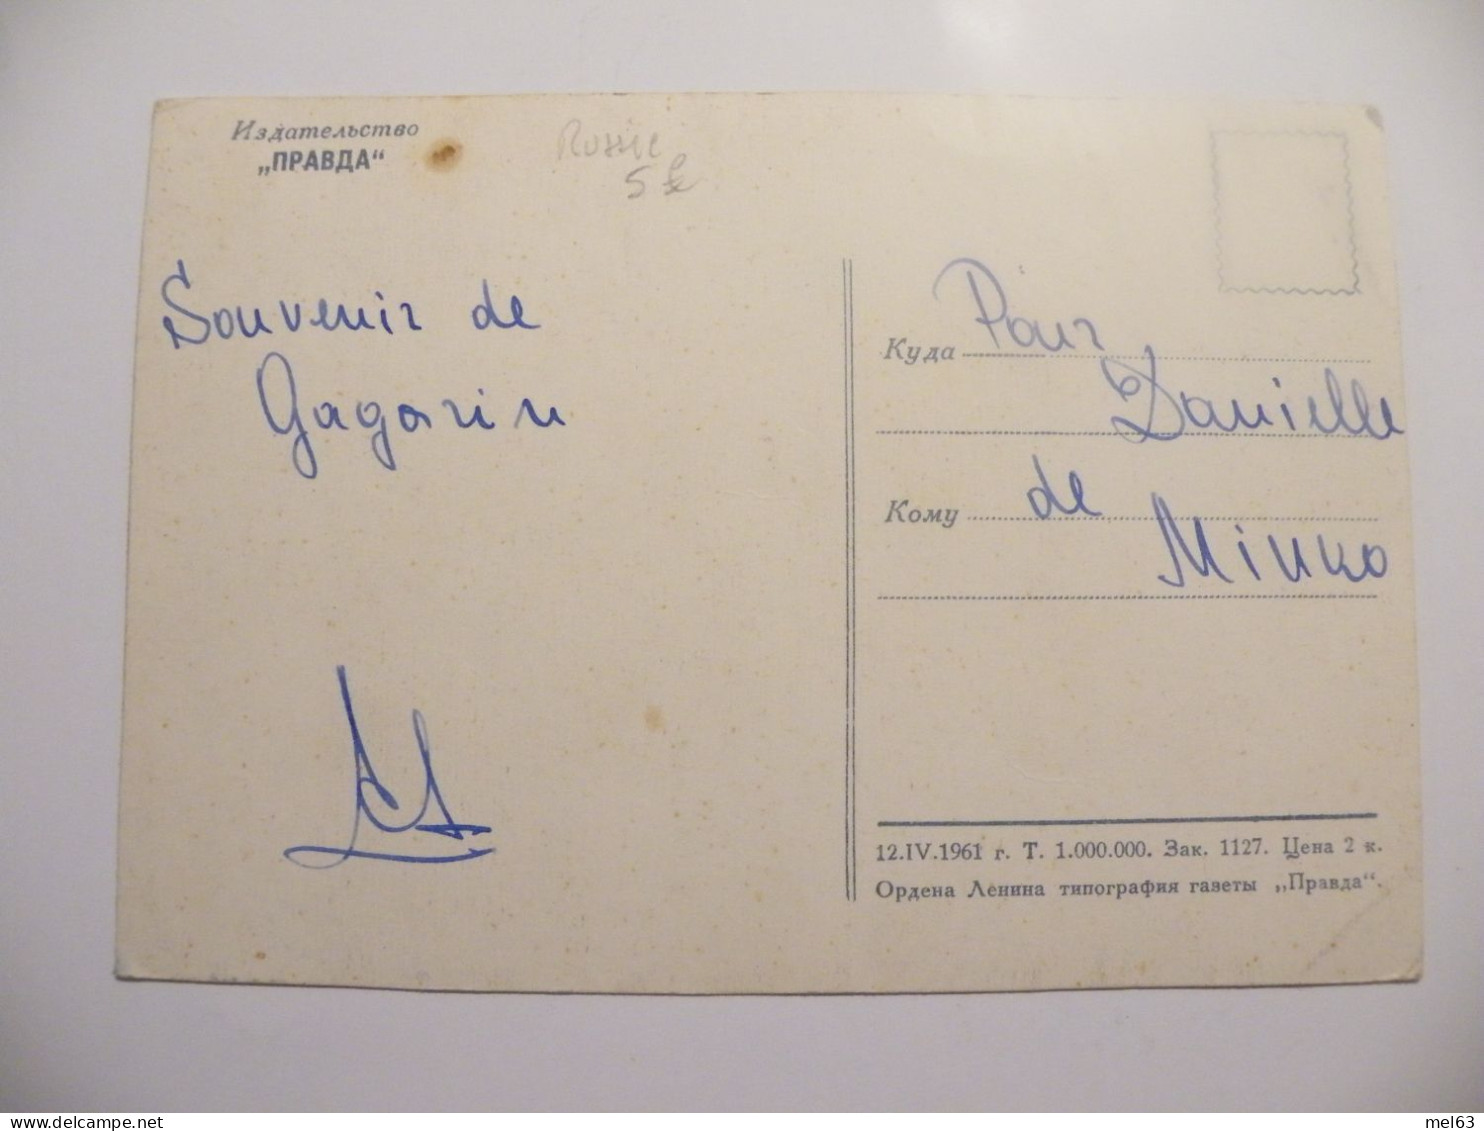 Издательство
„ПРАВДА“
Russie
5
Souvenir de
Gagarin
Куда Pour
Danielle
Кому de
Minko
12.IV.1961 г. Т. 1.000.000. Зак. 1127. Цена 2 к.
Ордена Ленина типография газеты „Правда“.
mel63